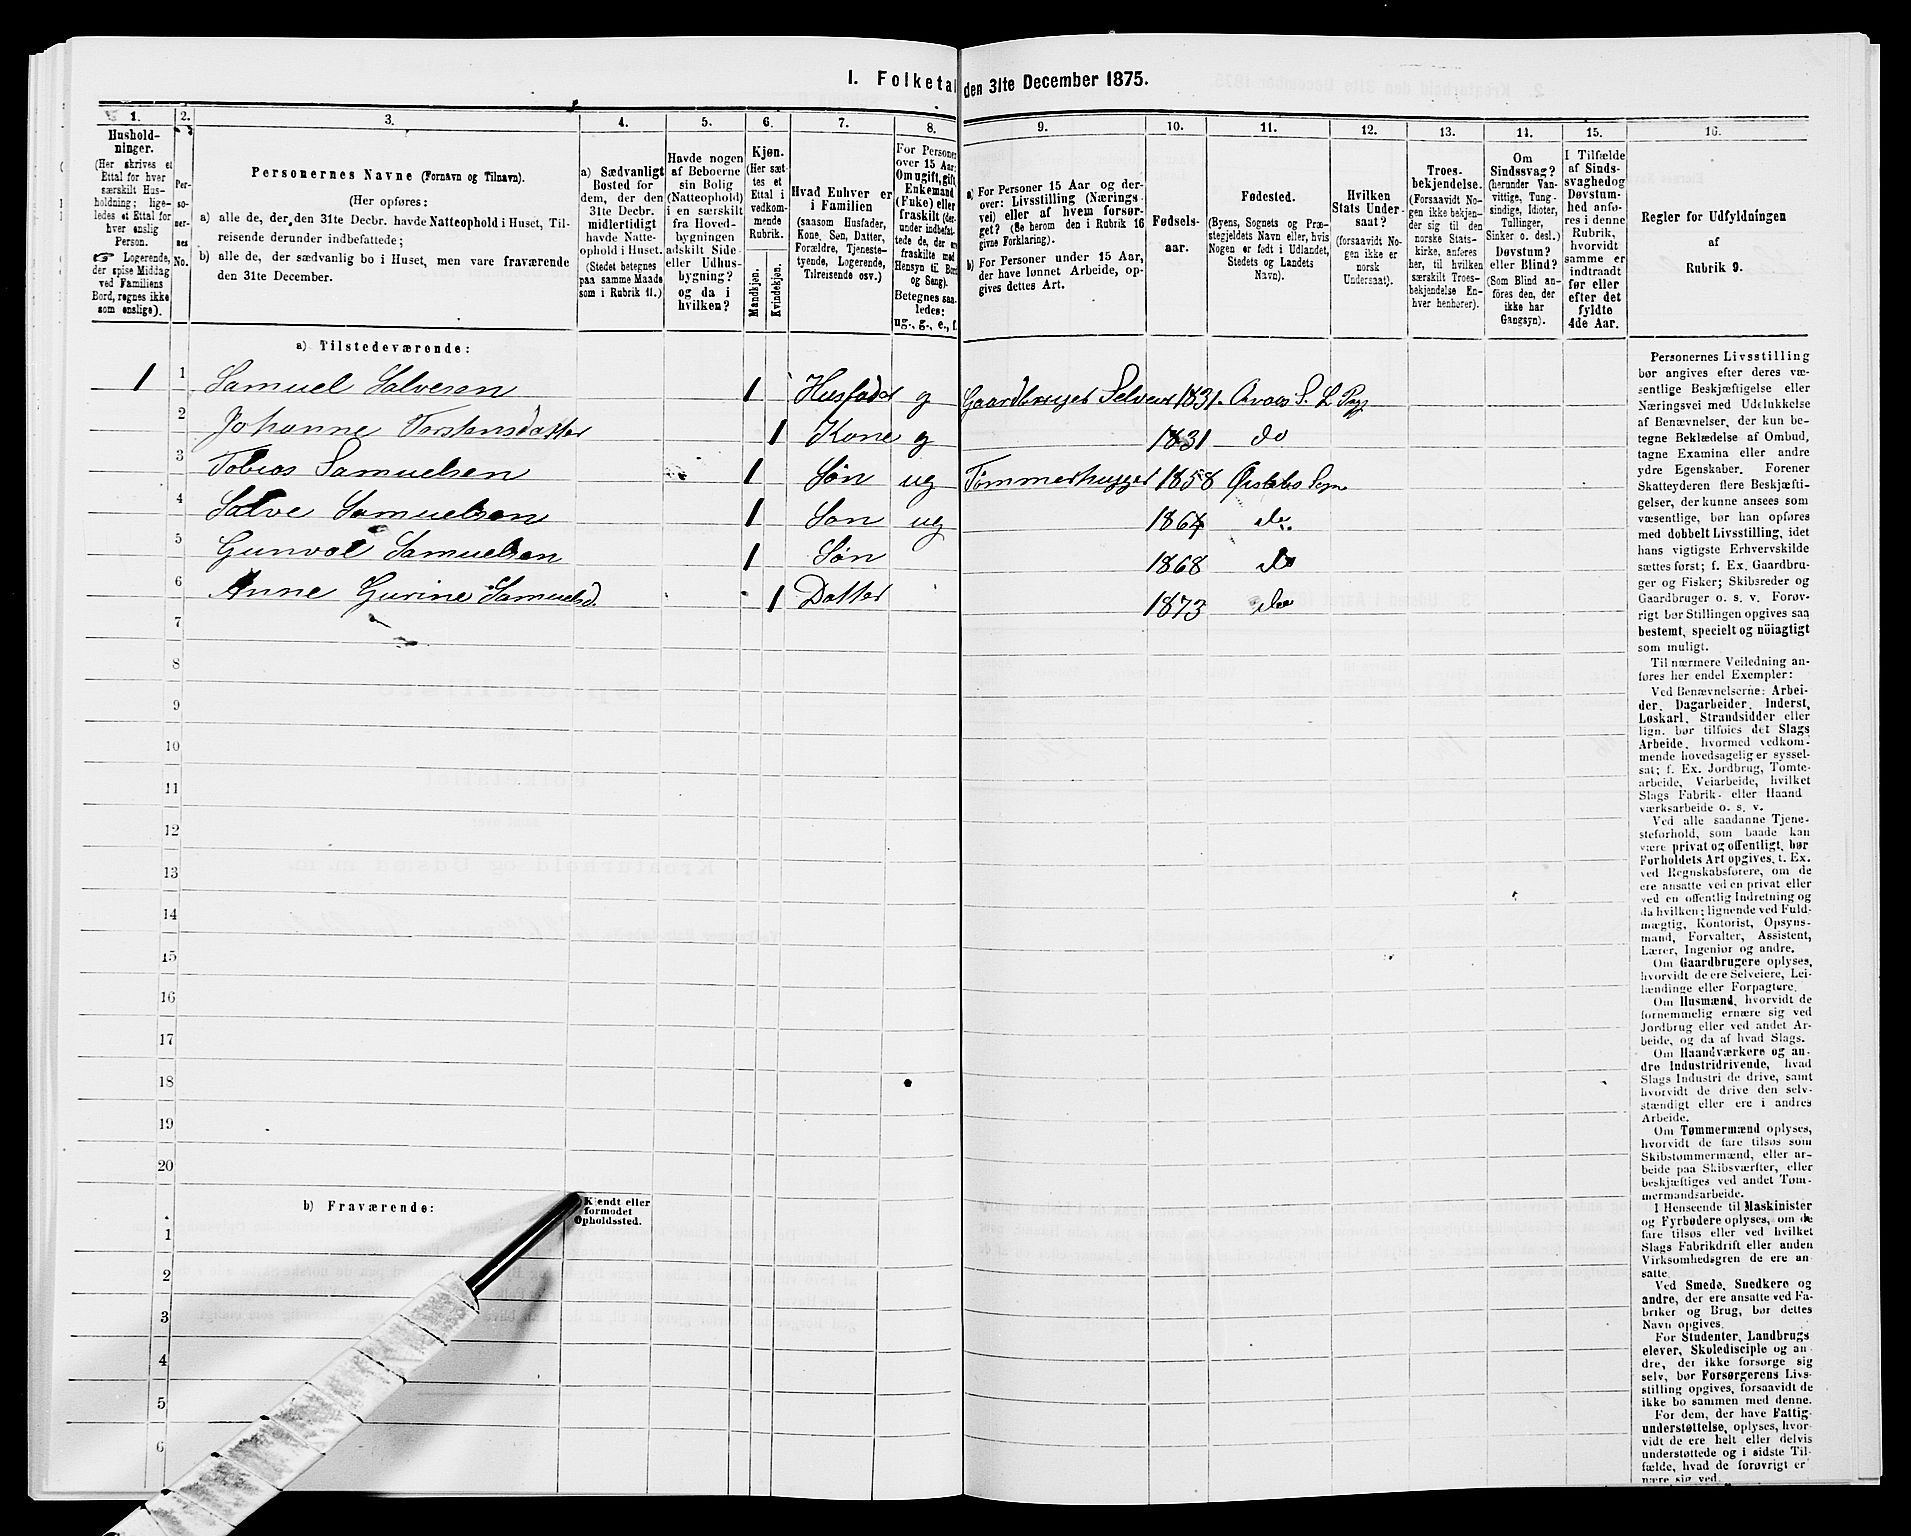 I. Folketal
den 31te December 1875.
1.
2.
3.
4.
5.
6.
7.
8.
9.
10.
11.
12.
13.
14.
15.
16.
Hushold-
ninger.
(Her skrives et
Ettal for hver
særskilt Hus-
holdning; lige-
ledes et Ettal for
hver enslig
Person.
☞ Logerende,
der spise Middag
ved Familiens
Bord, regnes ikke
som enslige).
Per-
so-
ner-
nes
No.
Personernes Navne (Fornavn og Tilnavn).
(Her opføres:
a) alle de, der den 31te Decbr. havde Natteophold i Huset, Til-
reisende derunder indbefattede;
b) alle de, der sædvanlig bo i Huset, men vare fraværende
den 31te December.
a) Sædvanligt
Bosted for
dem, der den
31te Decbr.
midlertidigt
havde Natte-
ophold i Huset.
(Stedet betegnes
paa samme Maade
som i Rubrik 11.)
Havde nogen
af Beboerne
sin Bolig
(Natteophold)
i en særskilt
fra Hoved-
bygningen
adskilt Side-
eller Udhus-
bygning?
og da i
hvilken?
Kjøn.
(Her sæt-
tes et
Ettal i
vedkom-
mende
Rubrik.
Mandkjøn.
Kvindekjøn.
Hvad Enhver er
i Familien
(saasom Husfader,
Kone, Søn, Datter,
Forældre, Tjeneste-
tyende, Logerende,
Tilreisende osv.)
For Personer
over 15 Aar:
Om ugift, gift,
Enkemand
(Fuke) eller
fraskilt (der-
under indbefat-
tede de, der ere
fraskilte med
Hensyn til Bord
og Seng).
Betegnes saa-
ledes:
ug., g., e., f.
a) For Personer 15 Aar og der-
over: Livsstilling (Nærings-
vei) eller af hvem forsør-
get? (Se herom den i Rubrik 16
givne Forklaring).
b) For Personer under 15 Aar,
der have lønnet Arbeide, op-
gives dettes Art.
Fødsels-
aar.
Fødested.
(Byens, Sognets og Præ-
stegjeldets Navn eller, hvis
Nogen er født i Udlandet,
Stedets og Landets
Navn).
Hvilken
Stats Under-
saat?
(forsaavidt No-
gen ikke er
norsk
Undersaat).
Troes-
bekjendelse.
(Forsaavidt No-
gen ikke bekjen-
der sig til den
norske Stats-
kirke, anføres
her, til hvilken
særskilt Troes-
bekjendelse En-
hver henhører).
Om
Sindssvag?
(herunder Van-
vittige, Tung-
sindige, Idioter,
Tullinger,
Sinker o. desl.)
Døvstum?
eller Blind?
(Som Blind an-
føres den, der
ikke har
Gangsyn).
I Tilfælde
af Sinds-
svaghed og
Døvstum-
hed anfø-
res i denne
Rubrik,
hvorvidt
samme er
indtraadt
før eller
efter det
fyldte
4de Aar.
Regler for Udfyldningen
af
Rubrik 9.
a) Tilstedeværende:
1 1 Samuel Salvesen 1 Husfader g Gaardbruger Selveier 1831
2 Johanne Torstensdatter 1 Kone g 1831 do
3 Tobias Samuelsen 1 Søn ug Tømmerhugger 1858
4 Salve Samuelsen 1 Søn ug 1864 do
5 Gunval Samuelsen 1 Søn 1868 do
6 Anne Gurine Samuelsd. 1 Datter 1873 do
7
8
9
10
11
12
13
14
15
16
17
18
19
20
b) Fraværende:
Kjendt eller
formodet
Opholdssted.
1
2
3
4
5
6
Personernes Livsstilling
bør angives efter deres væ-
sentlige Beskjæftigelse eller
Næringsvei med Udelukkelse
af Benævnelser, der kun be-
tegne Beklædelse af Ombud,
tagne Examina eller andre
ydre Egenskaber. Forener
Skatteyderen flere Beskjæfti-
gelser, der kunne ansees som
væsentlige, bør han opføres
med dobbelt Livsstilling, idet
hans vigtigste Erhvervskilde
sættes først; f. Ex. Gaardbru-
ger og Fisker; Skibsreder og
Gaardbruger o. s. v. Forøv-
rigt bør Stillingen opgives saa
bestemt, specielt og nöiagtigt
som muligt.
Til nærmere Veiledning an-
føres her endel Exempler:
Ved Benævnelserne: Arbei-
der, Dagarbeider, Inderst,
Løskarl, Strandsidder eller
lign. bør tilføies det Slags
Arbeide, hvormed vedkom-
mende hovedsagelig er syssel-
sat; f. Ex. Jordbrug, Tomte-
arbeide, Veiarbeide, hvilket
Slags Fabrik- eller Haand
værksarbeide o. s. v.
Ved alle saadanne Tjene-
steforhold, som baade kan
være privat og offentligt, bør
Forholdets Art opgives, t. Ex.
ved Regnskabsførere, om de
ere ansatte ved en privat eller
ved en offentlig Indretning og
da hvilken; lignende ved Fuld-
mægtig, Kontorist, Opsyns-
mand, Forvalter, Assistent,
Lærer, Ingeniør og andre.
Om Gaardbrugere oplyses,
hvorvidt de ere Selveiere, Lei-
lændinge eller Forpagtere.
Om Husmænd, hvorvidt de
fornemmelig ernære sig ved
Jordbrug eller ved andet Ar-
beide, og da af hvad Slags.
Om Haandværkere og an-
dre Industridrivende, hvad
Slags Industri de drive, samt
hvorvidt de drive den selv-
stændigt eller ere i andres
Arbeide.
Om Tømmermænd oplyses,
hvorvidt de fare tilsøs som
Skibstømmermænd, eller ar-
beide paa Skibsværfter, eller
beskjæftiges ved andet Tøm-
mermandsarbeide.
I Henseende til Maskinister
og Fyrbødere oplyses, om de
fare tilsøs eller ved hvilket
Slags Fabrikdrift eller anden
Virksomhedsgren de ere an-
satte.
Ved Smede, Snedkere og
andre, der ere ansatte ved Fa-
briker og Brug, bør dettes
Navn opgives.
For Studenter, Landbrugs
elever, Skoledisciple og an-
dre, der ikke forsørge sig
selv, bør Forsørgerens Livs-
stilling opgives, forsaavidt de
ikke bo sammen med denne.
For dem, der have Fattig-
understøttelse, oplyses, hvor-
vidt de ere helt eller delvis
understøttede og i sidste Til-
fælde, hvad de forøvrigt er
nære sig ved.